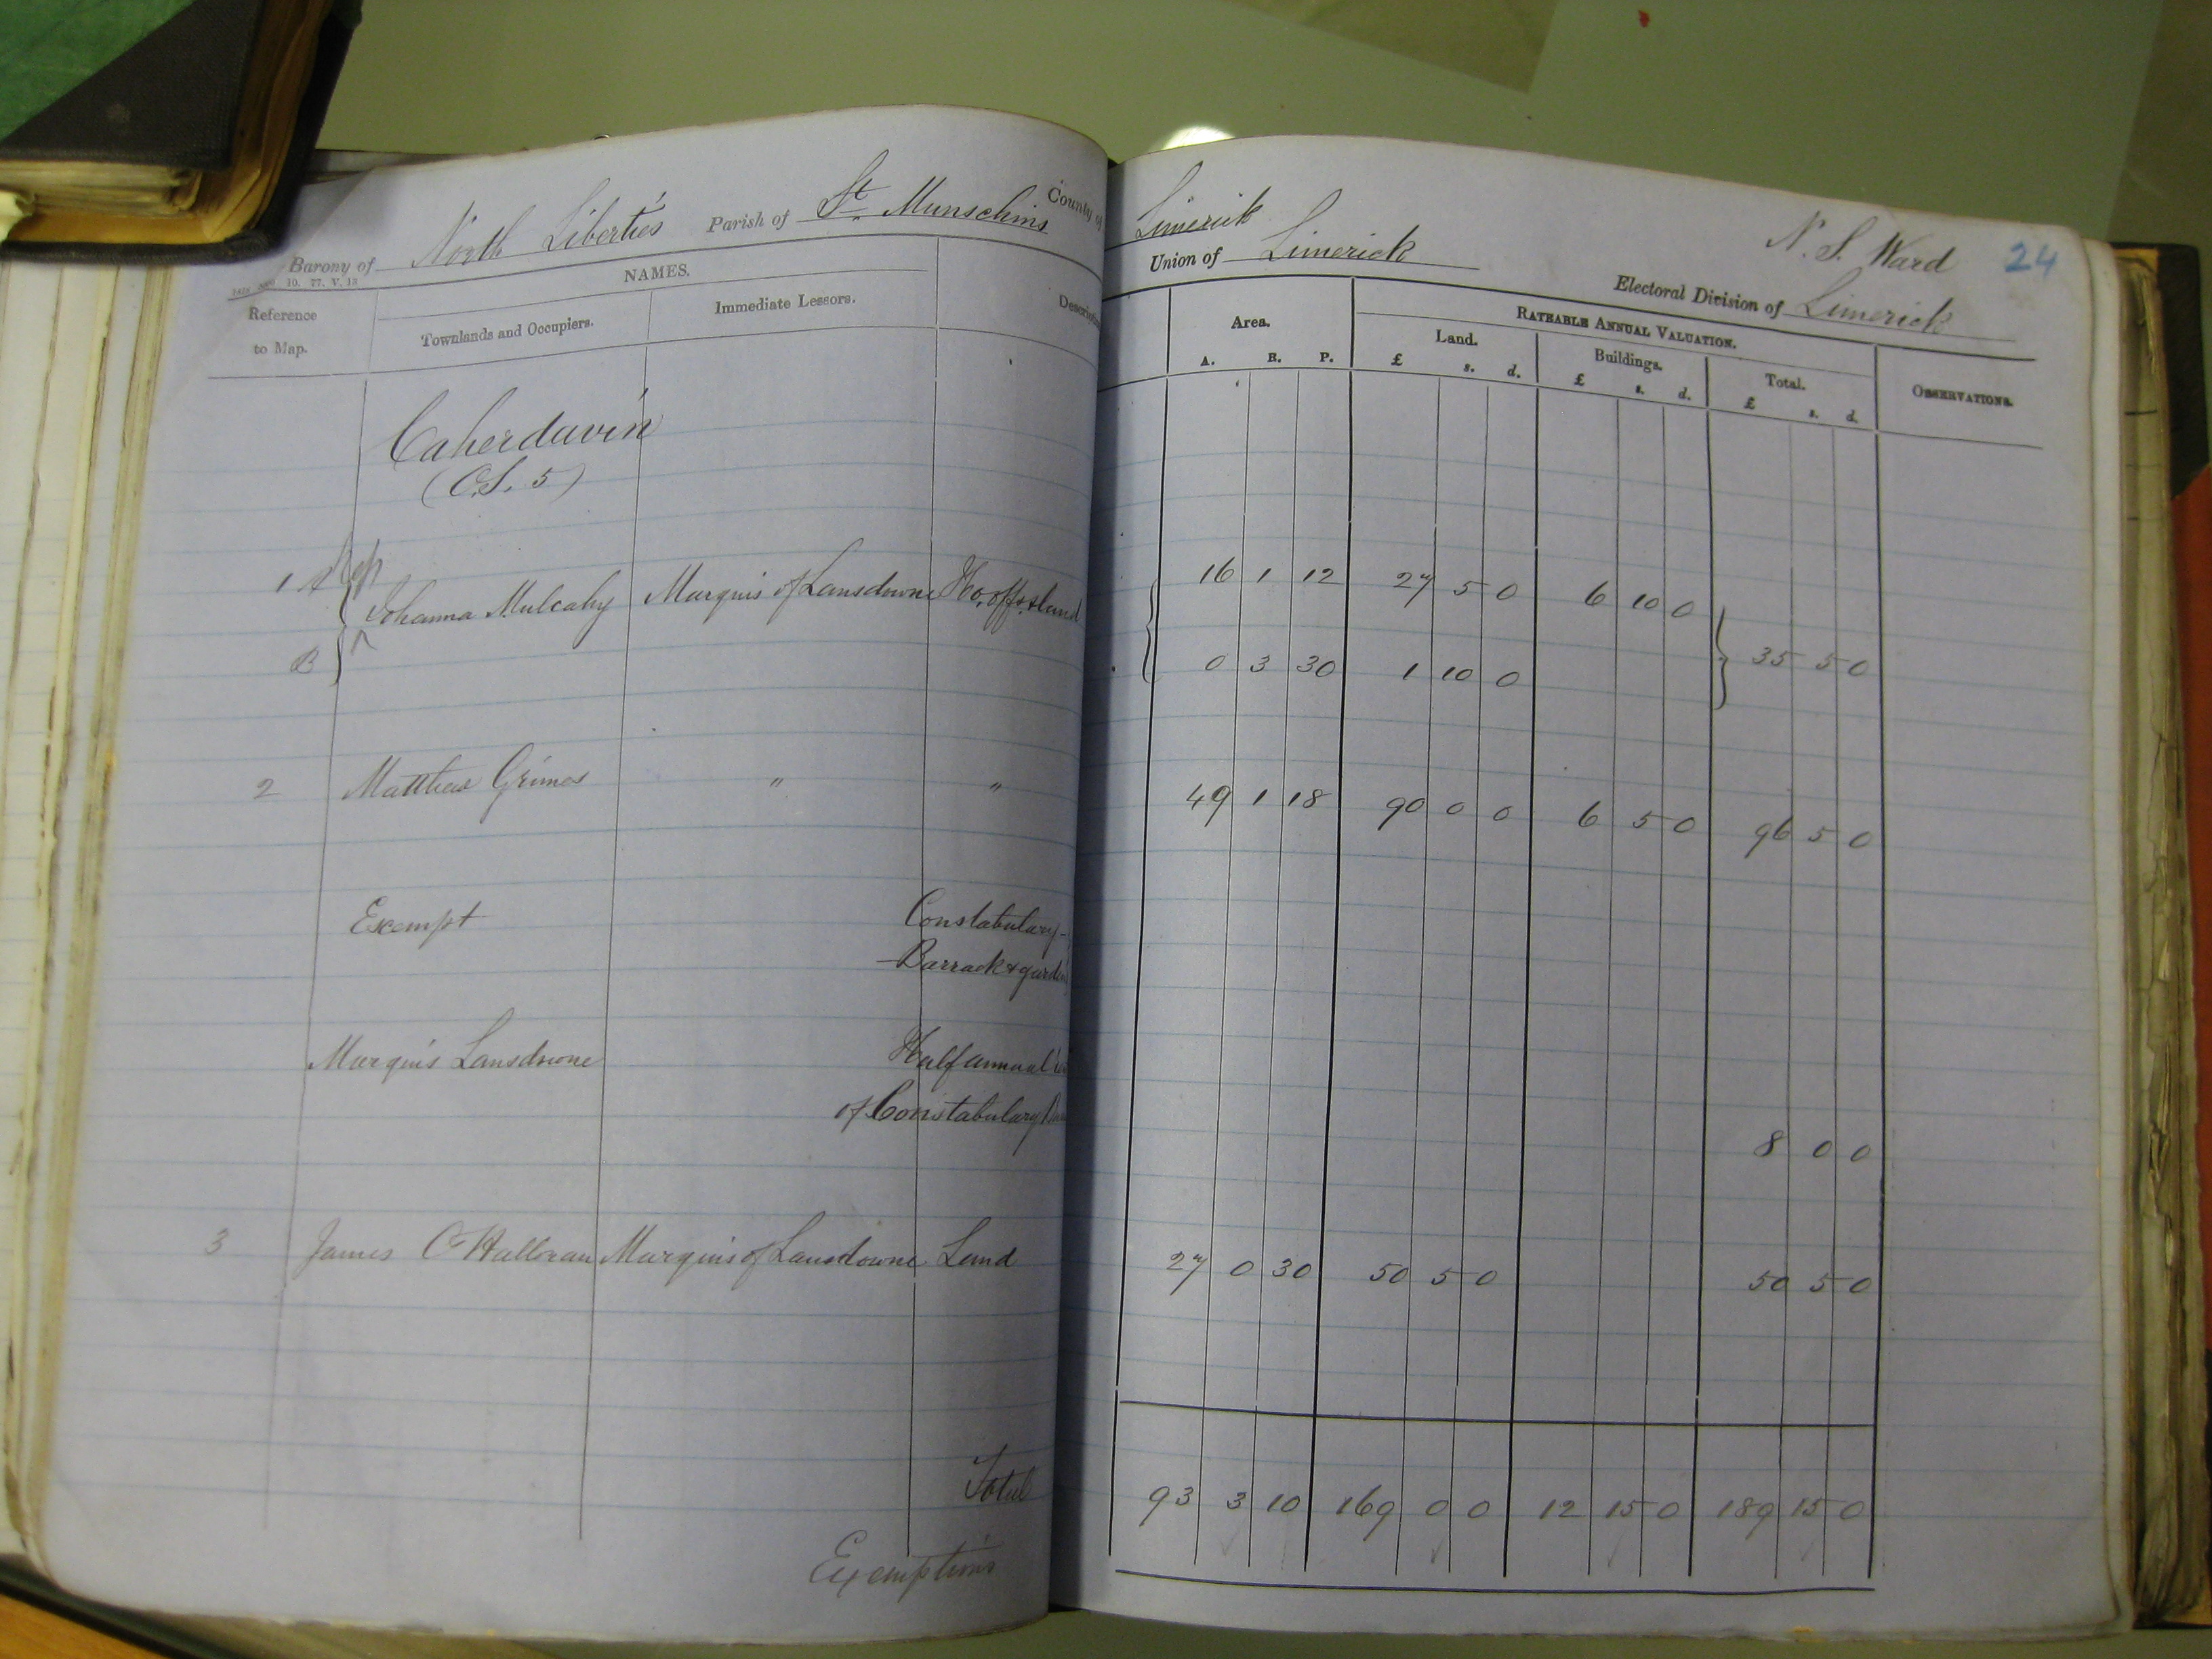 Barony of North Liberties Parish of St. Munschins County of Limerick
Union of Limerick
N. S. Ward 24
Electoral Division of Limerick
10. 77. V. 13
Reference to Map.
NAMES.
Townlands and Occupiers. Immediate Lessors.
Area.
A. R. P.
RATEABLE ANNUAL VALUATION.
Land. Buildings. Total.
£ s. d. £ s. d. £ s. d.
OBSERVATIONS.
Caherdavin
(O.S. 5)
Reps
1 A Johanna Mulcahy Marquis of Lansdowne Ho, offs. & land 16 1 12 27 5 0 6 10 0
B 0 3 30 1 10 0 35 5 0
2 Matthew Grimes " " 49 1 18 90 0 0 6 5 0 96 5 0
Exempt Constabulary
Barrack & garden
Marquis Lansdowne Half annual
of Constabulary
8 0 0
3 James O'Halloran Marquis of Lansdowne Land 27 0 30 50 5 0 50 5 0
Total 93 3 10 169 0 0 12 15 0 189 15 0
Exemptions